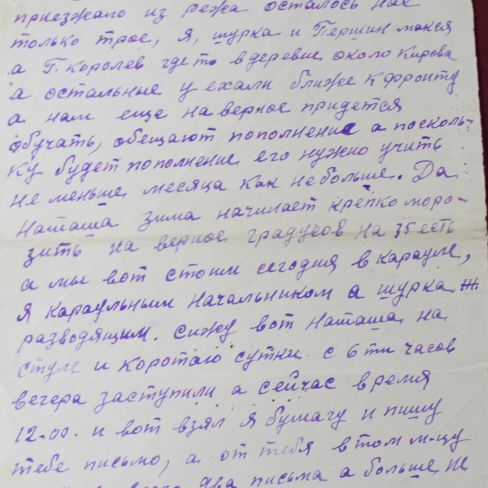 приезжало из Режа осталось нас
только трое, я, шурка и Першин макся
а Г. Королев где то в деревне около Кирова
а остальные уехали ближе к фронту
а нам еще наверное придется
обучать, обещают пополнение а посколь-
ку будет пополнение его нужно учить
не меньше месяца как не больше. Да
Наташа зима начинает крепко моро-
зить на верное градусов на 35 есть
а мы вот стоим сегодня в карауле,
я караульным начальником а шурка
разводящим. сижу вот Наташа на
стуле и коротаю сутки с 6 ти часов
вечера заступили а сейчас время
12.00. и вот взял я бумагу и пишу
тебе письмо, а от тебя в том м-цу
два письма а больше не